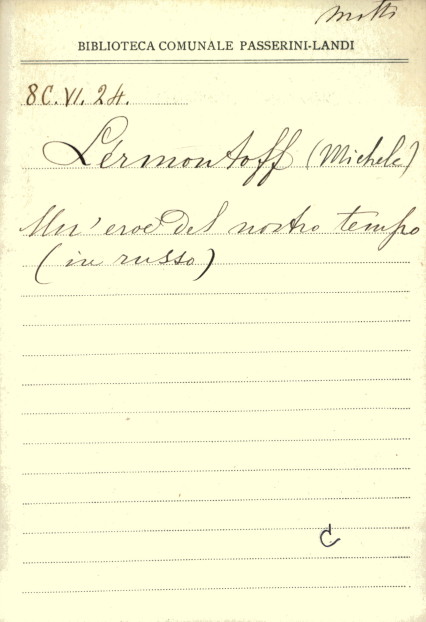 BIBLIOTECA COMUNALE PASSERINI-LANDI
8C. VI. 24.
Lermontoff (Michele)
Un'eroe del nostro tempo
(in russo)
C